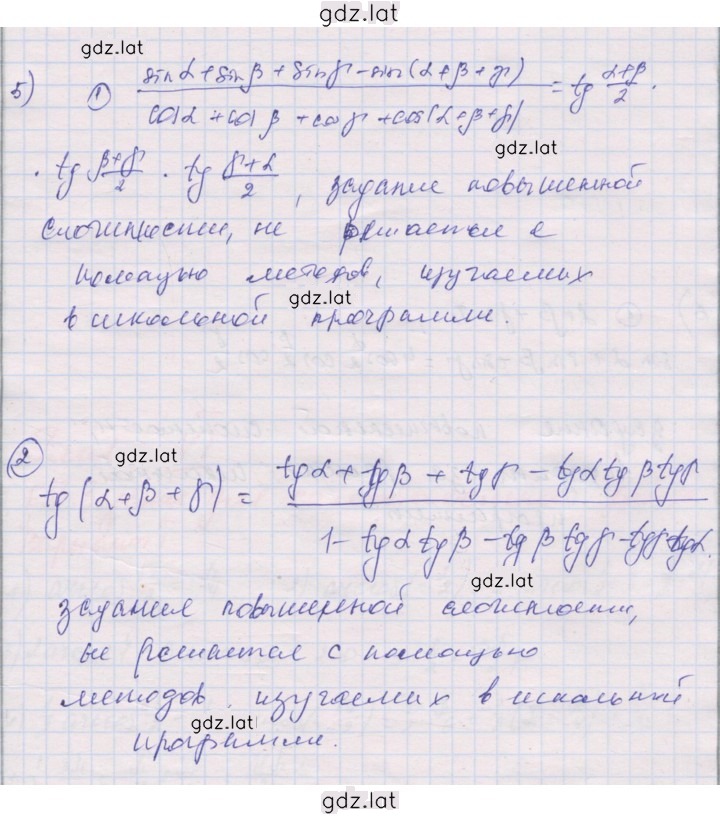 gdz.lat
gdz.lat
5) ① (sinα + sinβ + sinγ - sin(α+β+γ)) / (cosα + cosβ + cosγ + cos(α+β+γ)) = tg (α+β)/2 ·
gdz.lat
· tg (β+γ)/2 · tg (γ+α)/2, задание повышенной
сложности, не решается с
помощью методов, изучаемых
gdz.lat
в школьной программе.
gdz.lat
② tg(α+β+γ) = (tgα + tgβ + tgγ - tgα tgβ tgγ) / (1 - tgα tgβ - tgβ tgγ - tgγ tgα)
gdz.lat
задание повышенной сложности,
не решается с помощью
методов, изучаемых в школьной
gdz.lat
программе.
gdz.lat